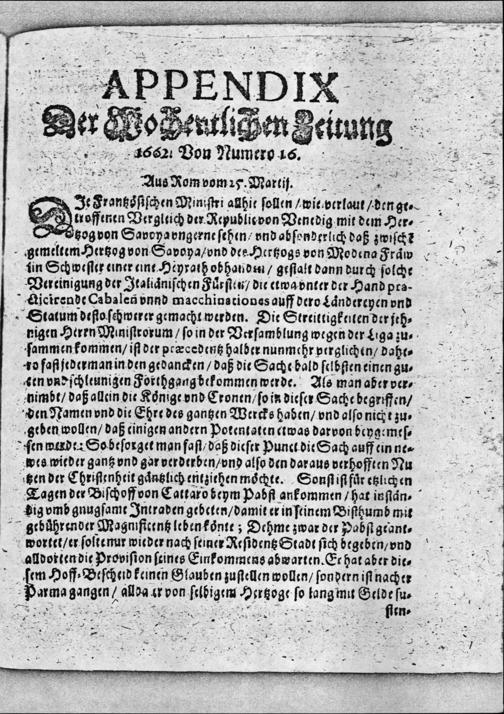 APPENDIX
Der Wochentlichen Zeitung
1662. Von Numero 16.
Aus Rom vom 25. Martij.
DIe Frantzösischen Ministri allhie sollen / wie verlaut / den ge-
troffenen Vergleich der Republic von Venedig mit dem Her-
tzog von Savoya ungerne sehen / und absonderlich daß zwischē
gemeltem Hertzog von Savoya / und des Hertzogs von Modena Fräw
lin Schwester einer eine Heyrath obhanden / gestalt dann durch solche
Vereinigung der Italiänischen Fürsten / die etwa unter der Hand pra-
cticirende Cabalen vnnd macchinationes auff dero Ländereyen und
Statum desto schwerer gemacht werden. Die Streittigkeiten der jeh-
nigen Herrn Ministrorum / so in der Versamblung wegen der Liga zu-
sammen kommen / ist der præcedentz halber nunmehr verglichen / dahe-
ro fast jederman in den gedancken / daß die Sache bald selbsten einen gu-
ten und schleunigen Forthgang bekommen werde. Als man aber ver-
nimbt / daß allein die Könige und Cronen / so in dieser Sache begriffen /
den Namen und die Ehre des gantzen Wercks haben / und also nicht zu-
geben wollen / daß einigen andern Potentaten etwas darvon beygemes-
sen werde: So besorget man fast / daß dieser Punct die Sach auff ein ne-
wes wieder gantz und gar verderben / und also den daraus verhofften Nu
tzen der Christenheit gäntzlich entziehen möchte. Sonst ist für etlichen
Tagen der Bischoff von Cattaro beym Pabst ankommen / hat instän-
dig vmb gnugsame Intraden gebeten / damit er in seinem Bisthumb mit
gebührender Magnificentz leben könte; Dehme zwar der Pabst geant-
wortet / er solte nur wieder nach seiner Residentz Stadt sich begeben / und
alldorten die Provision seines Einkommens abwarten. Er hat aber die-
sem Hoff-Bescheid keinen Glauben zustellen wollen / sondern ist nacher
Parma gangen / allda er von selbigem Hertzoge so lang mit Gelde su-
sten-